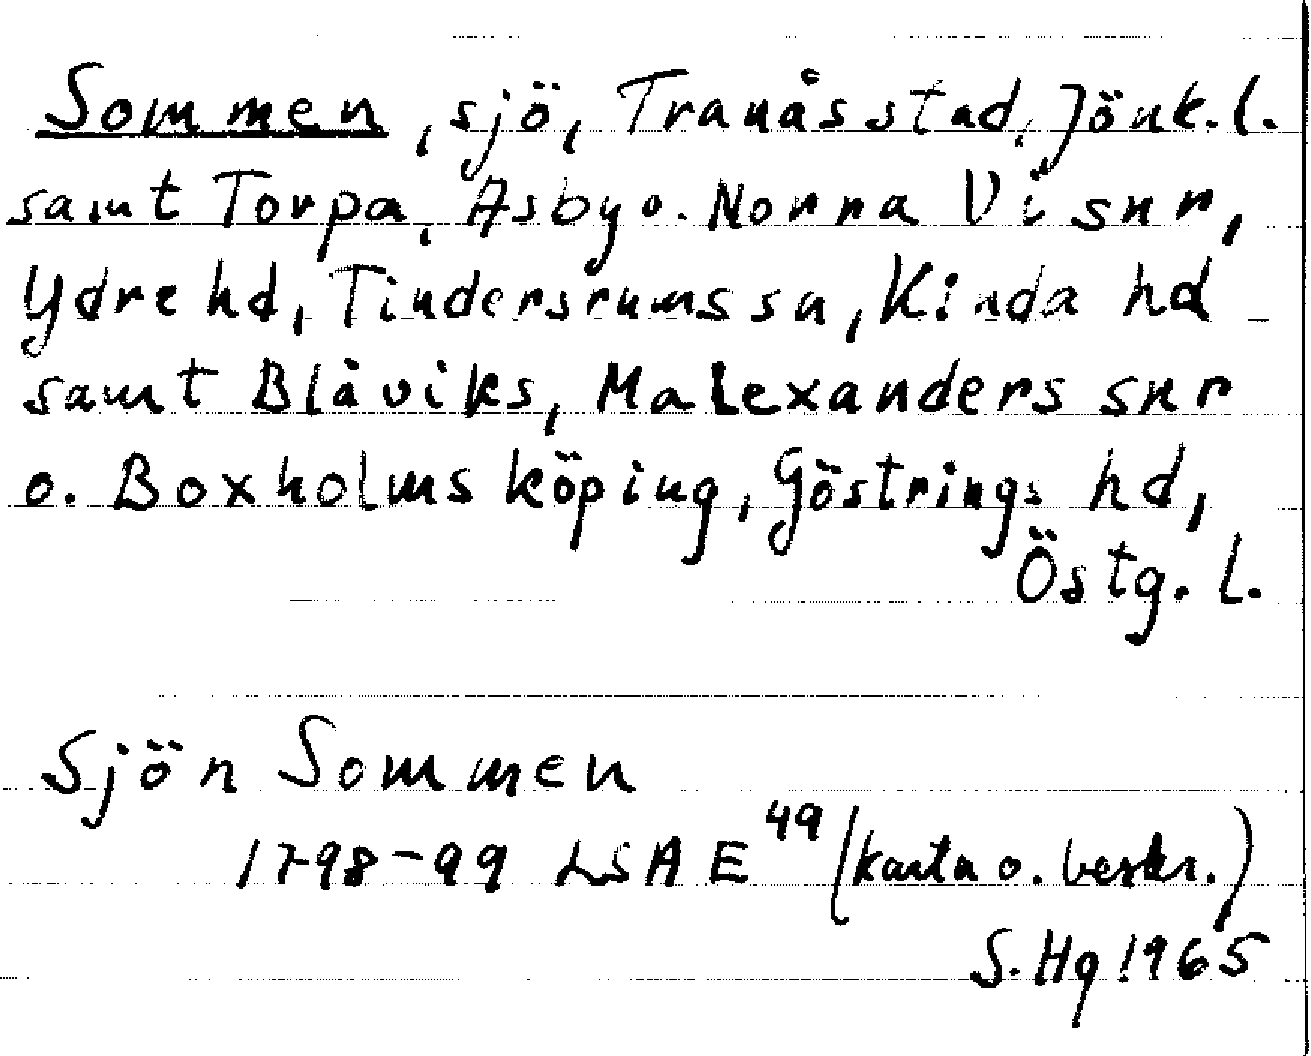 Sommen, sjö, Tranås stad, Jönk. l.
samt Torpa, Asby o. Norra Vi snr,
Ydre hd, Tindersrums sn, Kinda hd
samt Blåviks, Malexanders snr
o. Boxholms köping, Göstrings hd,
Östg. l.
Sjön Sommen
1798-99 LSA E 49 (karta o. beskr.)
S. Hg 1965